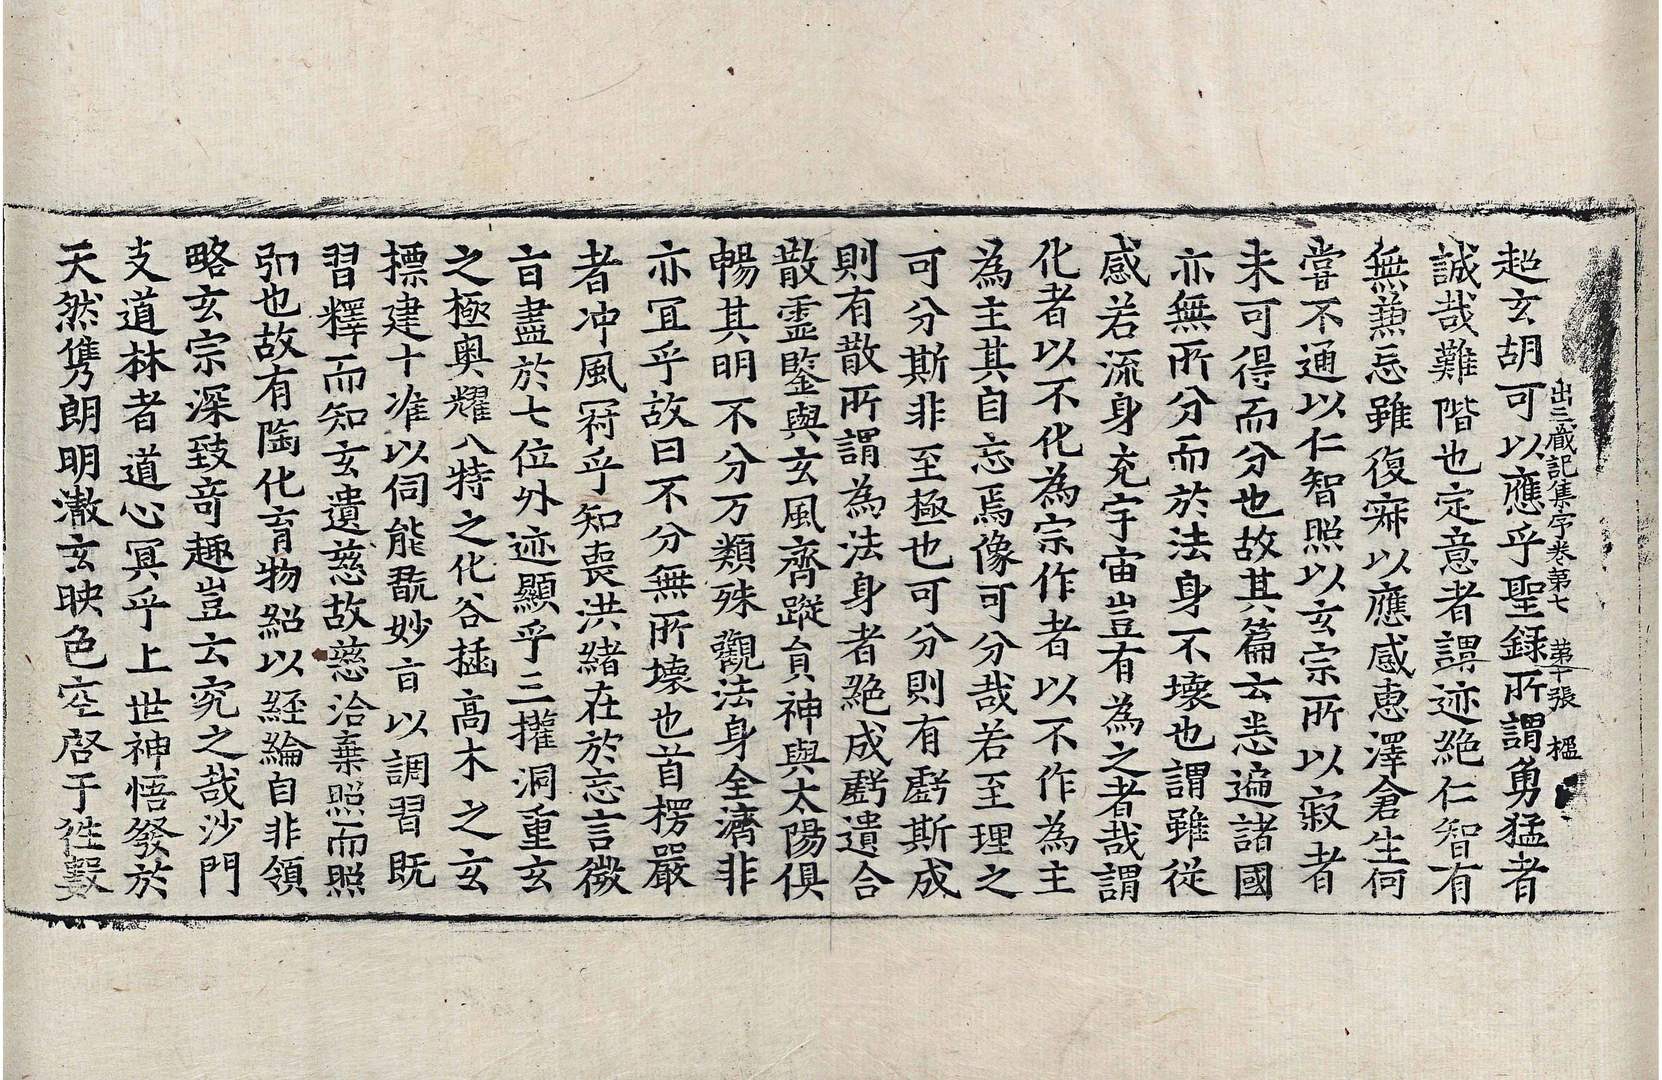 出三藏記集序卷第七　第十張　楹
超玄胡可以應乎聖錄所謂勇猛者
誠哉難階也定意者謂迹絶仁智有
無兼忘雖復寂以應感惠澤倉生何
甞不通以仁智照以玄宗所以寂者
未可得而分也故其篇云悉遍諸國
亦無所分而於法身不壞也謂雖從
感若流身充宇宙豈有為之者哉謂
化者以不化為宗作者以不作為主
為主其自忘焉像可分哉若至理之
可分斯非至極也可分則有虧斯成
則有散所謂為法身者絶成虧遺合
散靈鑒與玄風齊蹤負神與太陽俱
暢其明不分万類殊觀法身全濟非
亦冝乎故曰不分無所壞也首楞嚴
者冲風冠乎知喪洪緒在於忘言微
盲盡於七位外迹顯乎三權洞重玄
之極奧耀八特之化谷插高木之玄
標建十准以伺能翫妙盲以調習既
習釋而知玄遺慈故慈洽棄照而照
引也故有陶化育物紹以經綸自非領
略玄宗深致竒趣豈云究之哉沙門
支道林者道心冥乎上世神悟發於
天然儁朗明澈玄映色空啓于往數